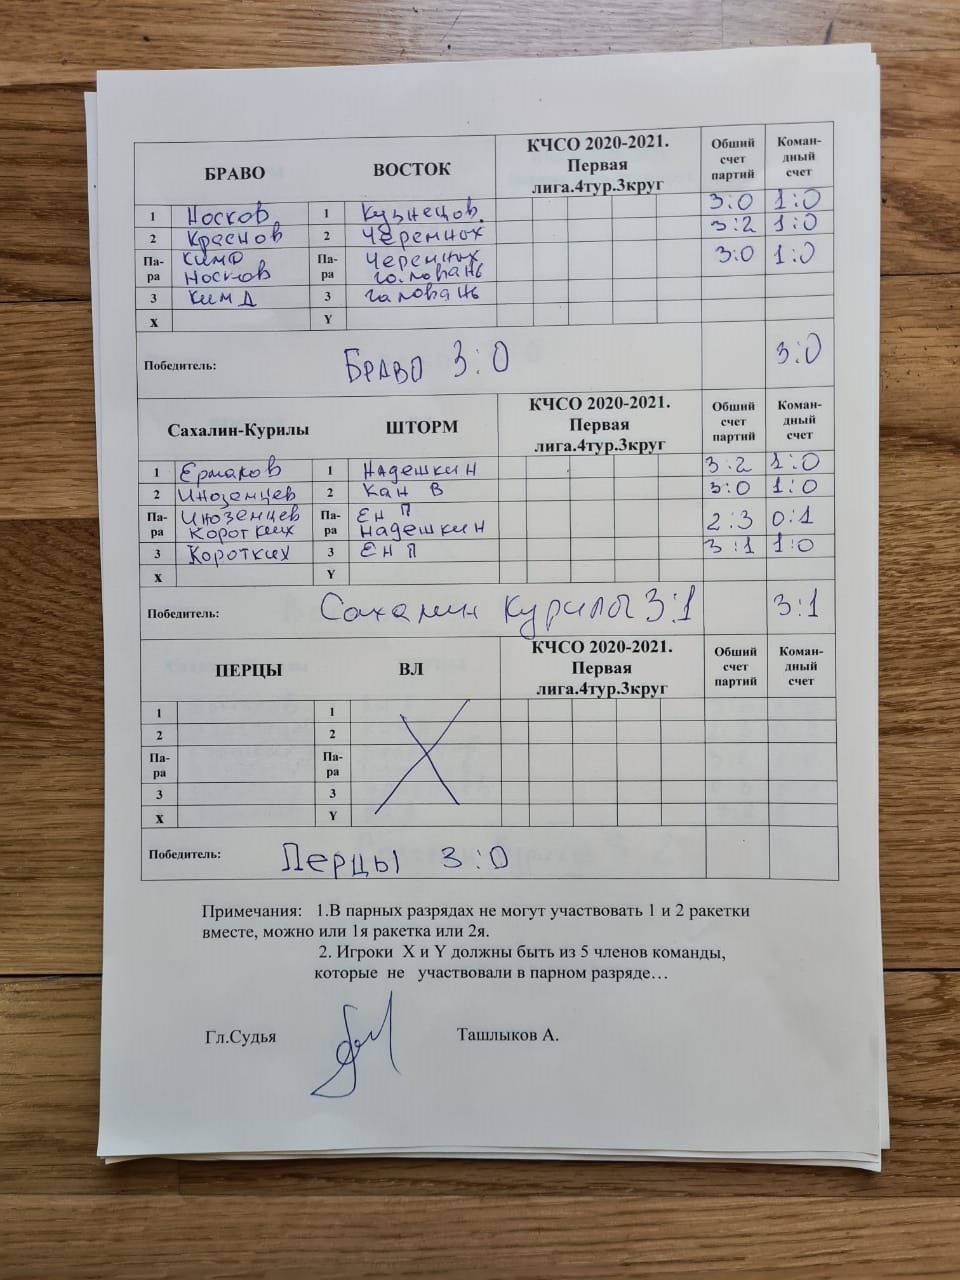 БРАВО ВОСТОК КЧСО 2020-2021. Первая лига.4тур.3круг Общий счет партий Коман-дный счет
1 Носков 1 Кузнецов. 3:0 1:0
2 Краснов 2 Черемных 3:2 1:0
Па-ра Ким Носков Па-ра Черемных Головань 3:0 1:0
3 Ким Д 3 Головань
X Y
Победитель: Браво 3:0 3:0
Сахалин-Курилы ШТОРМ КЧСО 2020-2021. Первая лига.4тур.3круг Общий счет партий Коман-дный счет
1 Ермаков 1 Надешкин 3:2 1:0
2 Иноземцев 2 Кан В 3:0 1:0
Па-ра Иноземцев Коротких Па-ра Ен П Надешкин 2:3 0:1
3 Коротких 3 Ен П 3:1 1:0
X Y
Победитель: Сахалин Курилы 3:1 3:1
ПЕРЦЫ ВЛ КЧСО 2020-2021. Первая лига.4тур.3круг Общий счет партий Коман-дный счет
1 1
2 2
Па-ра Па-ра
3 3
X Y
Победитель: Перцы 3:0
Примечания: 1.В парных разрядах не могут участвовать 1 и 2 ракетки
вместе, можно или 1я ракетка или 2я.
2. Игроки X и Y должны быть из 5 членов команды,
которые не участвовали в парном разряде…
Гл.Судья Ташлыков А.